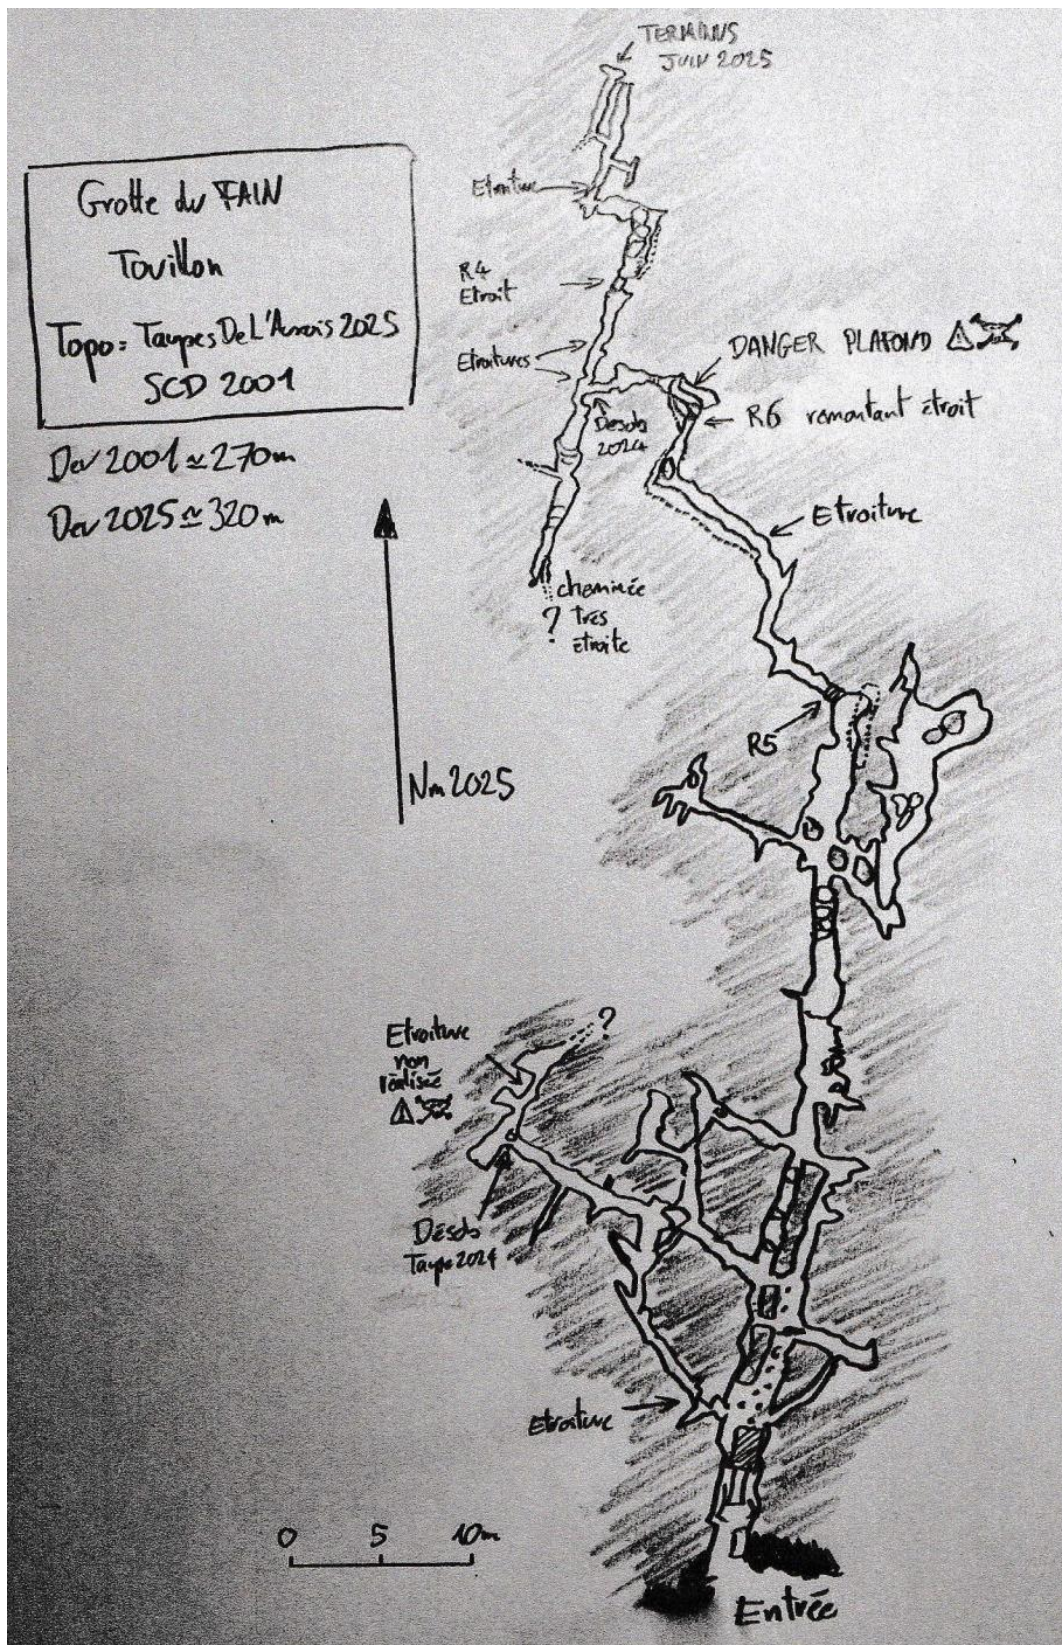 TERMINUS
JUIN 2025
Grotte du FAIN
Touillon
Topo: Taupes De L'Auxois 2025
SCD 2001
Dev 2001 ≃ 270m
Dev 2025 ≃ 320m
Etroiture
R4
Etroit
Etroitures
DANGER PLAFOND
R6 remontant étroit
Desob
2024
Etroiture
cheminée
? Tres
étroite
R5
Nm 2025
?
Etroiture
non
réalisée
Désob
Taupe 2024
Etroiture
0 5 10m
Entrée